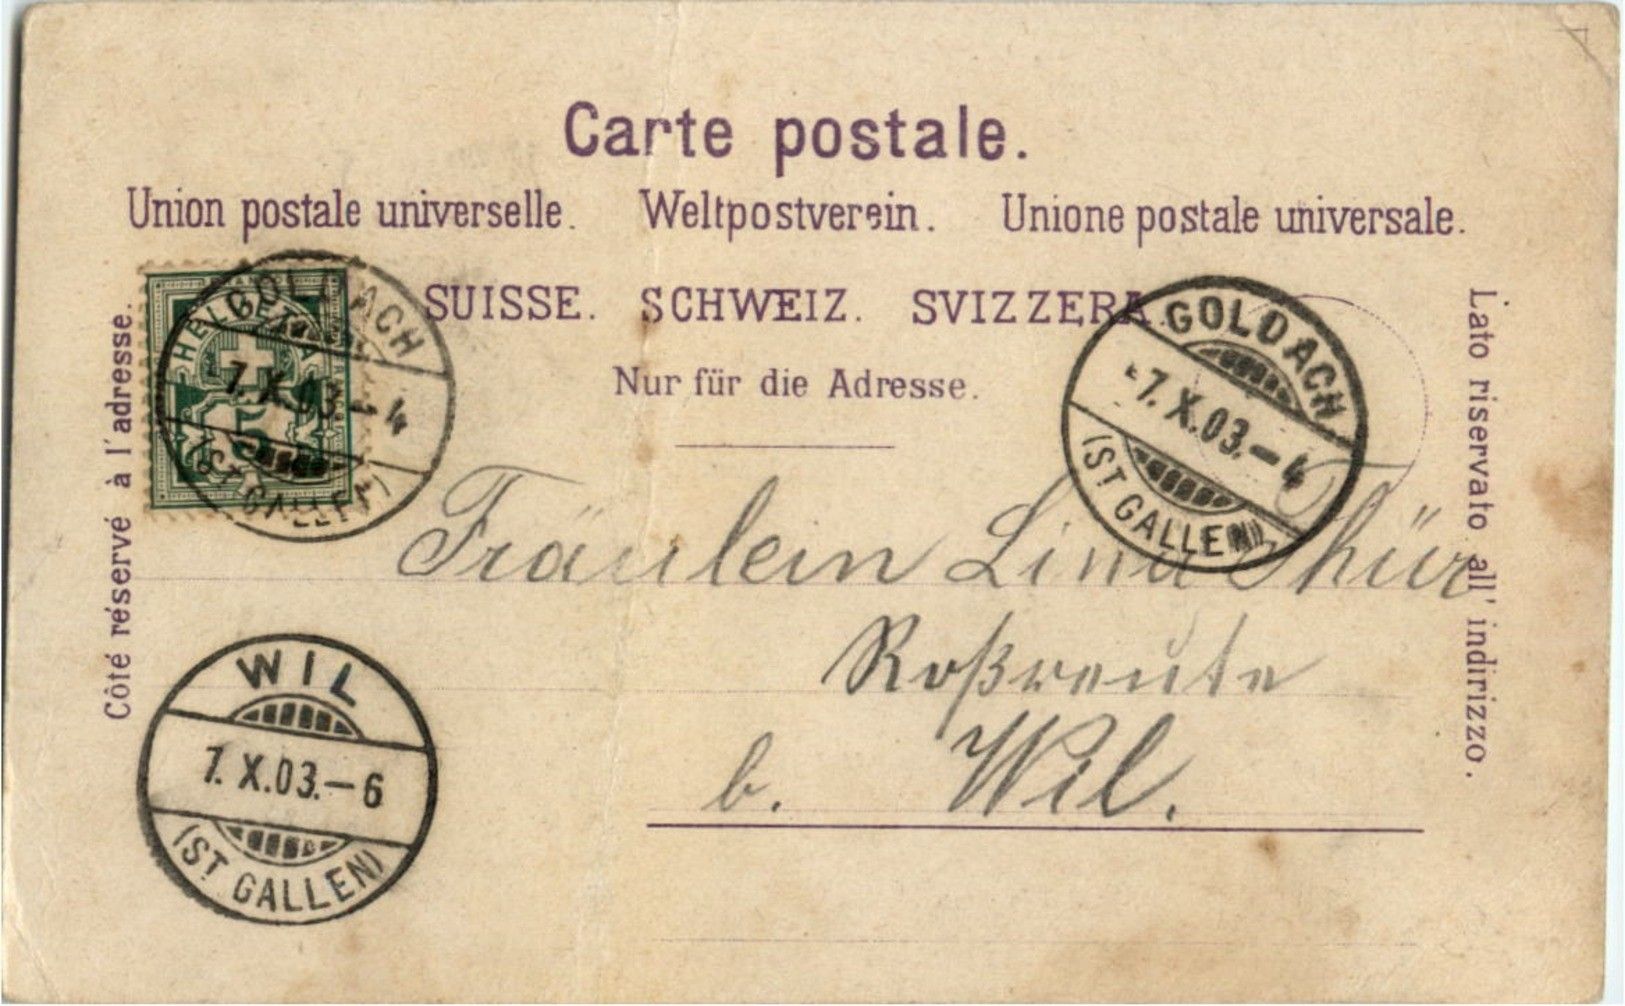 Carte postale.
Union postale universelle. Weltpostverein. Unione postale universale.
SUISSE. SCHWEIZ. SVIZZERA.
Nur für die Adresse.
Côté réservé à l'adresse.
Lato riservato all' indirizzo.
HELVETIA
5
GOLDACH
7.X.03.–4
(ST. GALLEN)
GOLDACH
7.X.03.–4
(ST. GALLEN)
Fräulein Lina Thür
Roßreute
b. Wil.
WIL
7.X.03.–6
(ST. GALLEN)